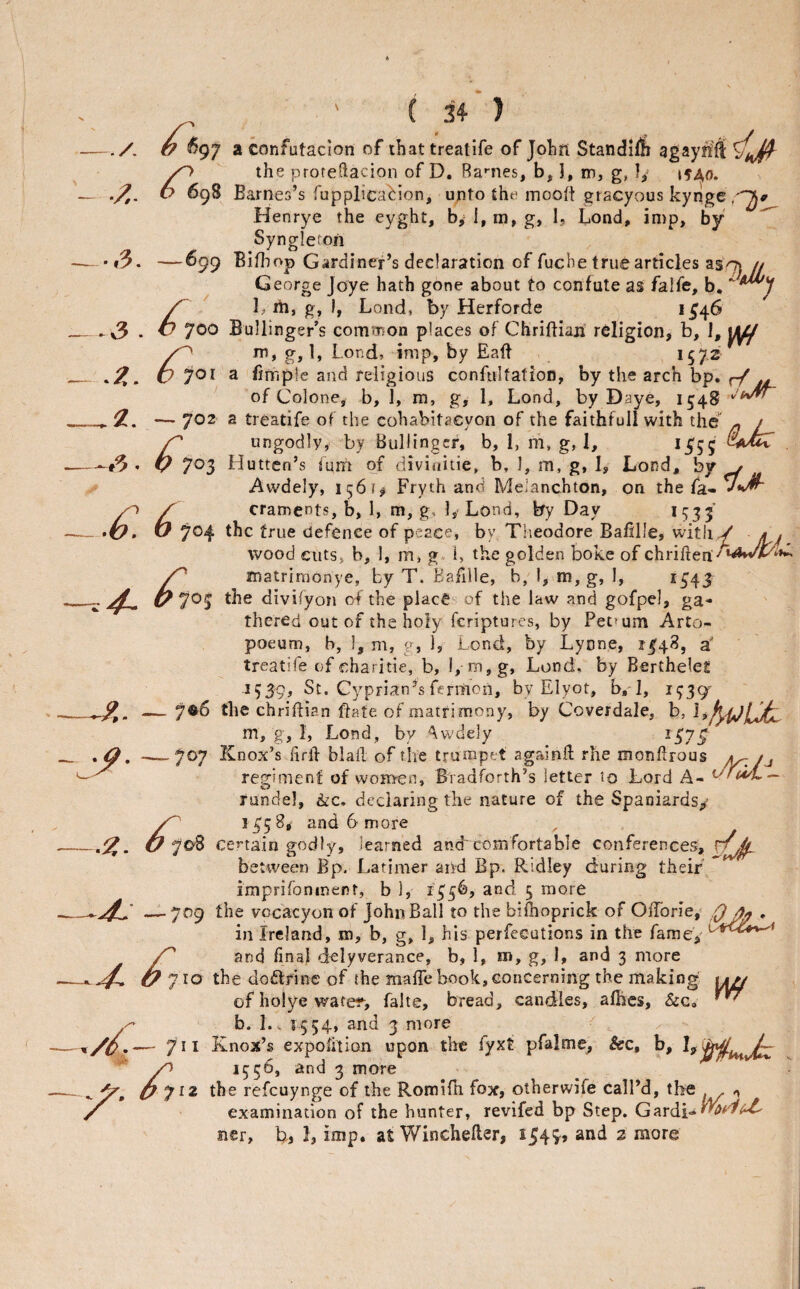 ( 34 )
—./. 6 697 a confutacion of that treatise of John Standish agaynst
the protestacion of D. Barnes, b, l, m, g, l, 1540.
— .2. 6 698 Barnes's supplicacion, unto the moost gracyous kynge
Henrye the eyght, b, l, m, g, l, Lond, imp, by
Syngleton
— .3. —699 Bishop Gardiner's declaration of suche true articles as
George Joye hath gone about to confute as false, b.
l, m, g, l, Lond, by Herforde 1546
— .3. 6 700 Bullinger's common places of Christian religion, b, l,
m, g, l, Lond, imp, by East 1572
— .2. 6 701 a simple and religious consultation, by the arch bp.
of Colone, b, l, m, g, l, Lond, by Daye, 1548
— .2. — 702 a treatise of the cohabitacyon of the faithfull with the
ungodly, by Bullinger, b, l, m, g, l, 1555
— .3. 6 703 Hutten's sum of divinitie, b, l, m, g, l, Lond, by
Awdely, 1561, Fryth and Melanchton, on the sa-
craments, b, l, m, g, l, Lond, by Day 1533
— .6. 6 704 the true defence of peace, by Theodore Basille, with
wood cuts, b, l, m, g, l, the golden boke of christen
matrimonye, by T. Basille, b, l, m, g, l, 1543
— .4. 6 705 the divisyon of the place of the law and gospel, ga-
thered out of the holy scriptures, by Petrum Arto-
poeum, b, l, m, g, l, Lond, by Lynne, 1548, a
treatise of charitie, b, l, m, g, Lond, by Berthelet
1539, St. Cyprian's sermon, by Elyot, b, l, 1539
— .2. — 706 the christian state of matrimony, by Coverdale, b, l,
m, g, l, Lond, by Awdely 1575
— .9. — 707 Knox's first blast of the trumpet against the monstrous
regiment of women, Bradforth's letter to Lord A-
rundel, &c. declaring the nature of the Spaniards,
1558, and 6 more
— .2. 6 708 certain godly, learned and comfortable conferences,
between Bp. Latimer and Bp. Ridley during their
imprisonment, b l, 1556, and 5 more
— .4. — 709 the vocacyon of John Ball to the bishoprick of Ossorie,
in Ireland, m, b, g, l, his persecutions in the same,
and final delyverance, b, l, m, g, l, and 3 more
— .4. 6 710 the doctrine of the masse book, concerning the making
of holye water, salte, bread, candles, ashes, &c.
b. l. 1554, and 3 more
— ./6. — 711 Knox's exposition upon the syxt psalme, &c, b, l,
1556, and 3 more
— .7. 6 712 the rescuynge of the Romish fox, otherwise call'd, the
examination of the hunter, revised bp Step. Gardi-
ner, b, l, imp. at Winchester, 1545, and 2 more